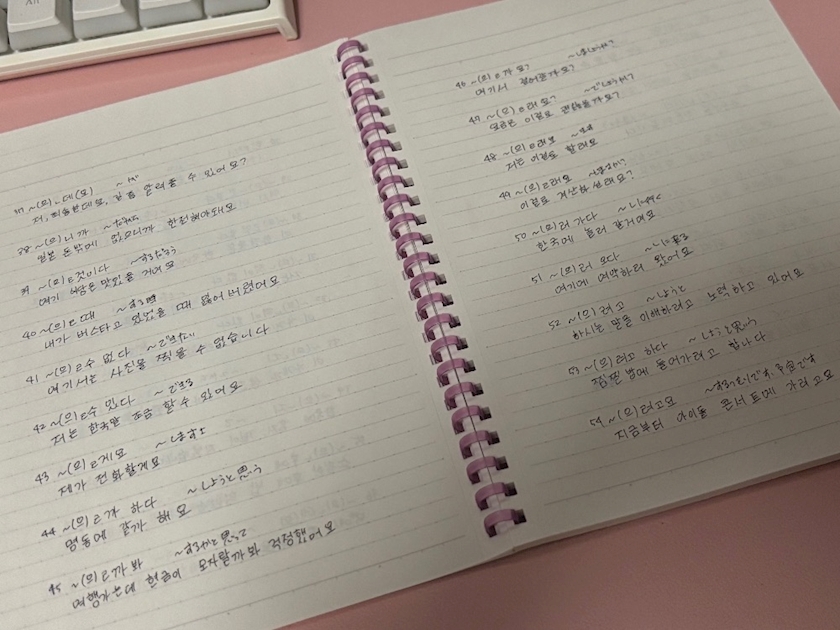 Alt
37 ~(으)ㄴ데(요) ~が
저, 죄송한데요, 길 좀 알려줄 수 있어요?
38 ~(으)니까 ~から
일본 돈밖에 없으니까 환전해야돼요
39 ~(으)ㄹ것이다 ~するだろう
여기 식당은 맛있을 거에요
40 ~(으)ㄹ때 ~する時
내가 버스타고 있었을 때 잃어버렸어요
41 ~(으)ㄹ수 없다 ~できない
여기서는 사진을 찍을 수 없습니다
42 ~(으)ㄹ수 있다 ~できる
저는 한국말 조금 할 수 있어요
43 ~(으)ㄹ게요 ~しますよ
제가 전화할게요
44 ~(으)ㄹ까 하다 ~しようと思う
명동에 갈까 해요
45 ~(으)ㄹ까봐 ~するかと思って
여행가는데 현금이 모자랄까봐 걱정했어요
46 ~(으)ㄹ까요? ~ましょうか?
여기서 걸어갈까요?
47 ~(으)ㄹ까요? ~でしょうか?
요금은 이걸로 괜찮을까요?
48 ~(으)ㄹ래요
저는 이걸로 할래요
49 ~(으)ㄹ래요 ~ますか?
이걸로 계산하실래요?
50 ~(으)러 가다 ~しに行く
한국에 놀러 갈거에요
51 ~(으)러 오다 ~しに来る
여기에 여행하러 왔어요
52 ~(으)려고 ~しようと
하시는 말을 이해하려고 노력하고 있어요
53 ~(으)려고 하다 ~しようと思う
집엔 밤에 들어가려고 합니다
54 ~(으)려고요 ~するつもりです、予定です
지금부터 아이돌 콘서트에 가려고요